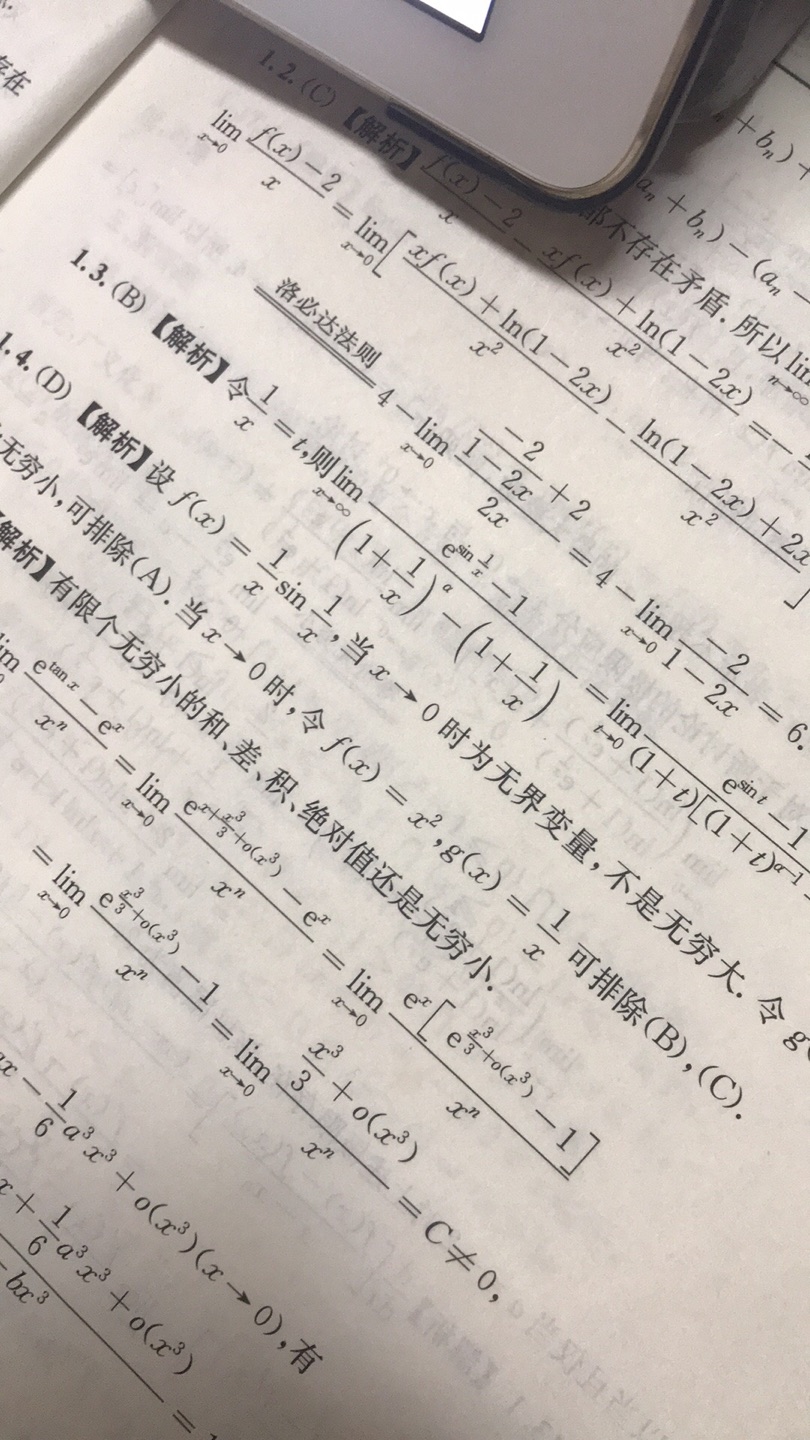 存在
1.2.(C) 【解析】 \frac{f(x)-2}{x} - \frac{xf(x)+\ln(1-2x)}{x^2} = -
\lim_{x→0} \frac{f(x)-2}{x} = \lim_{x→0} [ \frac{xf(x)+\ln(1-2x)}{x^2} - \frac{\ln(1-2x)+2x}{x^2} ]
洛必达法则 4-\lim_{x→0} \frac{\frac{-2}{1-2x}+2}{2x} = 4-\lim_{x→0} \frac{-2}{1-2x} = 6.
1.3.(B) 【解析】令 \frac{1}{x} = t, 则 \lim_{x→∞} \frac{e^{\sin\frac{1}{x}}-1}{(1+\frac{1}{x})^α-(1+\frac{1}{x})} = \lim_{t→0} \frac{e^{\sin t}-1}{(1+t)[(1+t)^{α-1}-
1.4.(D) 【解析】设 f(x) = \frac{1}{x}\sin\frac{1}{x}, 当 x→0 时为无界变量, 不是无穷大. 令 g(
无穷小, 可排除(A). 当 x→0 时, 令 f(x) = x^2, g(x) = \frac{1}{x} 可排除(B),(C).
解析】有限个无穷小的和、差、积、绝对值还是无穷小.
\frac{e^{\tan x}-e^x}{x^n} = \lim_{x→0} \frac{e^{x+\frac{x^3}{3}+o(x^3)}-e^x}{x^n} = \lim_{x→0} \frac{e^x[e^{\frac{x^3}{3}+o(x^3)}-1]}{x^n}
= \lim_{x→0} \frac{e^{\frac{x^3}{3}+o(x^3)}-1}{x^n} = \lim_{x→0} \frac{\frac{x^3}{3}+o(x^3)}{x^n} = C≠0,
x-\frac{1}{6}a^3x^3+o(x^3)(x→0), 有
x+\frac{1}{6}a^3x^3+o(x^3)
bx^3
=
a_n+b_n)-(a_n
都不存在矛盾. 所以 \lim_{n→∞}